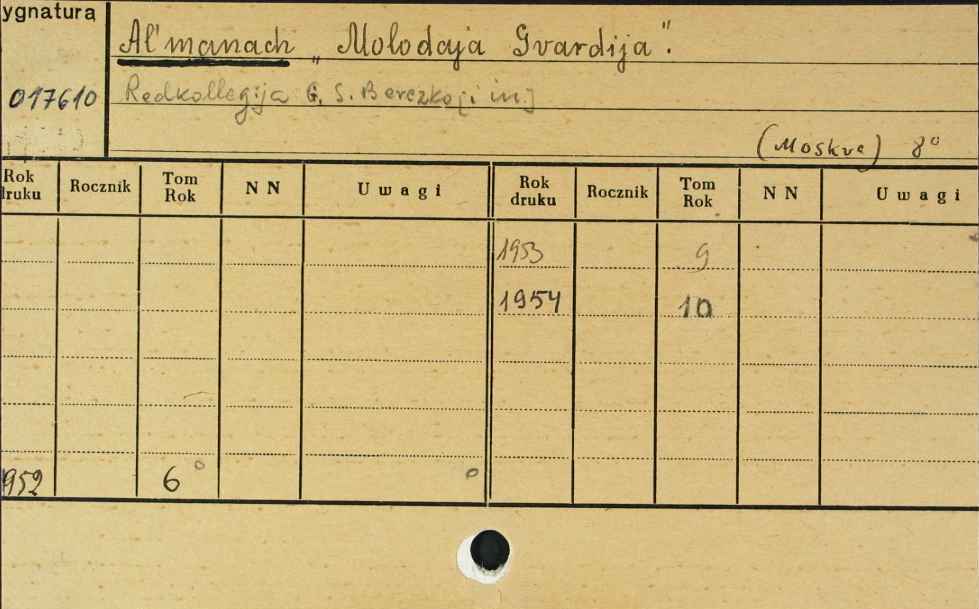 ygnatura
Al'manach „Mołodaja Gvardija".
017610
Redkollegija G. S. Berezko [i in.]
(Moskva) 8°
Rok druku Rocznik Tom Rok N N Uwagi Rok druku Rocznik Tom Rok N N Uwagi
1953 9
1954 10
952 6